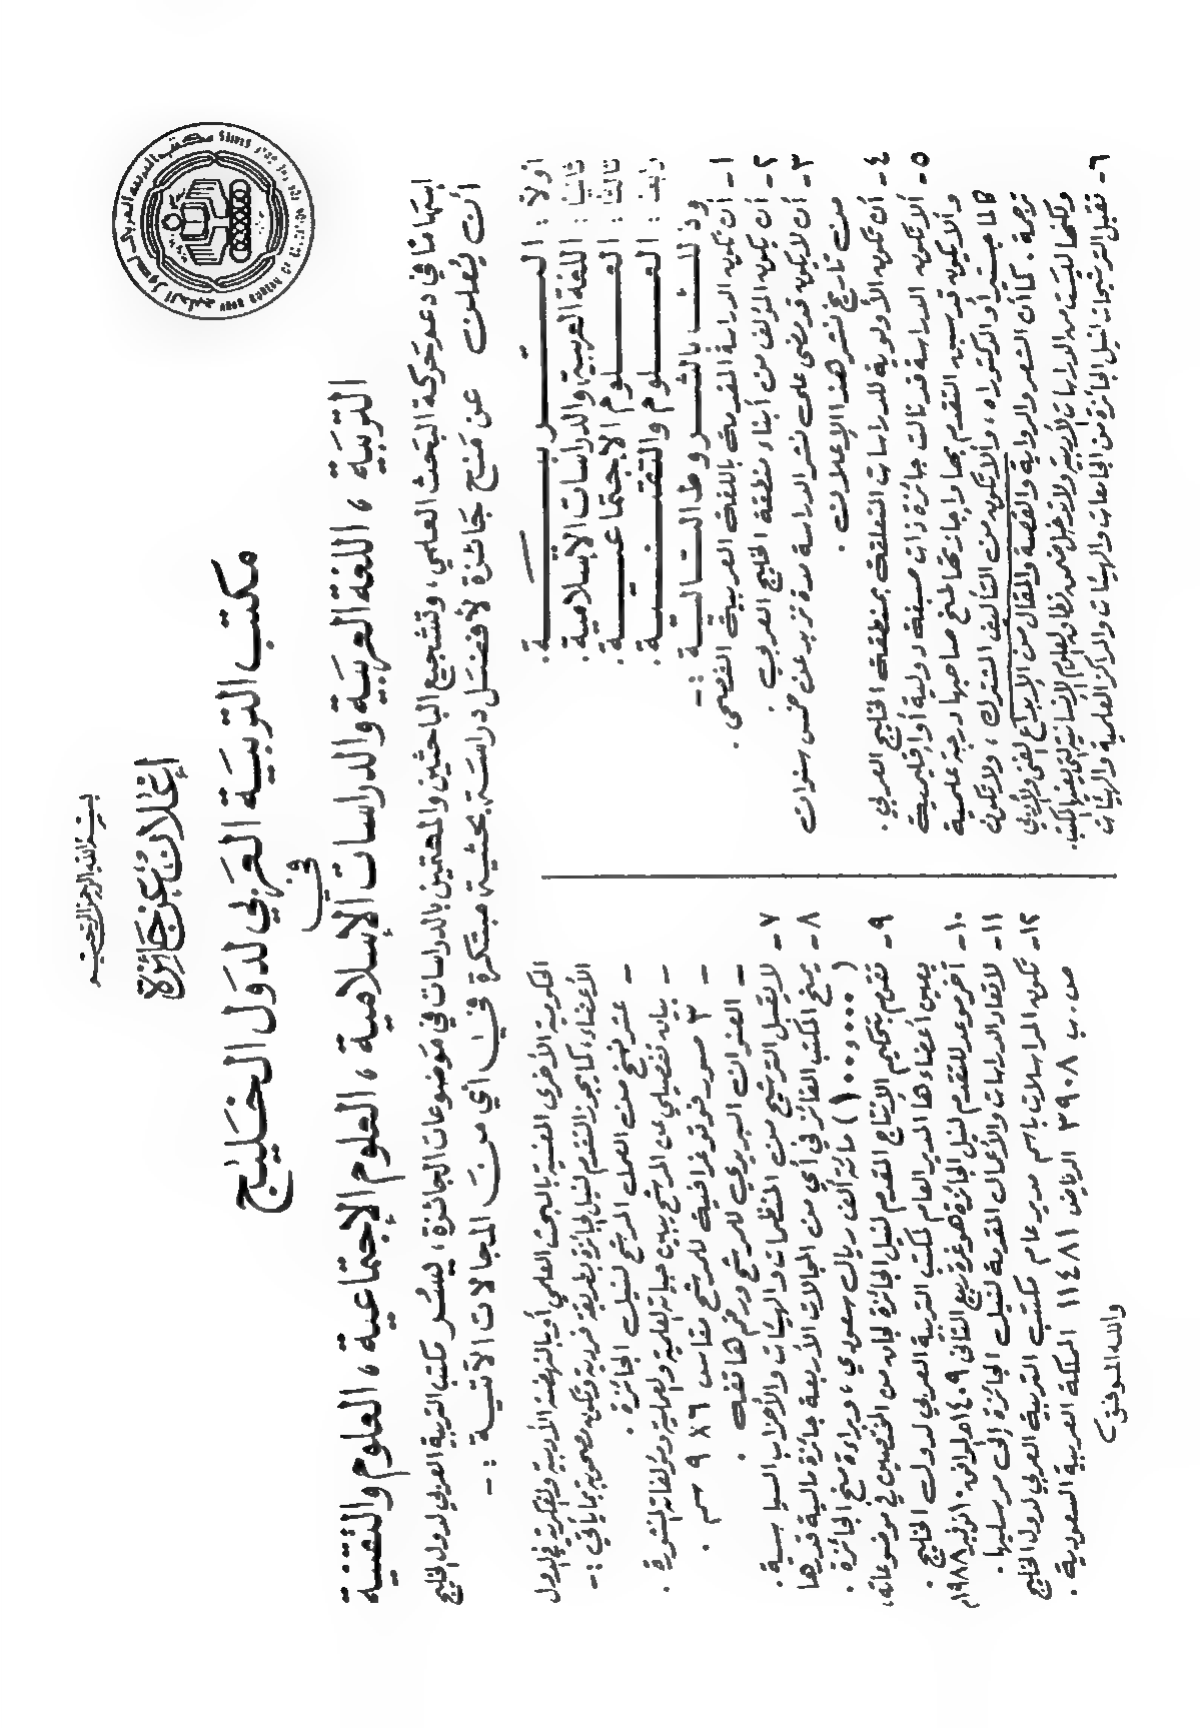 بسم الله الرحمن الرحيم
إعلان عن جائزة
مكتب التربية العربي لدول الخليج
في
التربية ، اللغة العربية والدراسات الإسلامية ، العلوم الإجتماعية ، العلوم والتقنية
إسهامًا في دعم حركة البحث العلمي ، وتشجيع الباحثين والمهتمين بالدراسات في موضوعات الجائزة ، يسُر مكتب التربية العربي لدول الخليج
أن يُعلن عن مَنح جَائزة لأفضَل دراسَة بحثية مبتكرة في أي من المجالات الآتية :-
أولاً : التربية .
ثانيًا : اللغة العربية والدراسات الإسلامية .
ثالثًا : العلوم الإجتماعية .
رابعًا : العلوم والتقنية .
وذلك بالشروط التالية :-
١- أن تكون الدراسة المقدمة باللغة العربية الفصحى .
٢- أن يكون المؤلف من أبناء منطقة الخليج العربي
٣- أن لايكون قد مضى على نشر الدراسة مدة تزيد عن خمس سنوات
من تاريخ نشر هذا الإعلان .
٤- أن تكون الأولوية للدراسات المتعلقة بمنطقة الخليج العربي .
٥- ألا تكون الدراسة قد نالت جائزة ذات صبغة دولية أو إقليمية
وألا يكون قد سبق التقدم بها وإجازتها لمنح صاحبها درجة علمية
كالماجستير أو الدكتوراه ، وألا تكون من التأليف المشترك ، ولا تكون
ترجمة . كما أن الشعر والرواية والقصة والمقال من الإبداع الفني والأدبي
ولكنها ليست من الدراسات الأدبية ولا تدخل ضمن نطاق العلوم الإنسانية التي يعنيها المكتب .
٦- تقبل الترشيحات لنيل الجائزة من الجامعات والهيئات والمراكز العلمية والهيئات
الحكومية الأخرى المعنية بالبحث العلمي أو بالنهضة الأدبية والفكرية في الدول
الأعضاء ، كما يجوز التقدم لنيل الجائزة بطريقة فردية وتكون مصحوبة بما يأتي :-
- عشر نسخ من العمل المرشح لنيل الجائزة .
- بيان تفصيلي عن المرشح يبين حياته العلمية والعملية ومؤلفاته المنشورة .
- ٣ صور فوتوغرافية للمرشح مقاس ٦×٩ سم .
- العنوان البريدي للمرشح ورقم هاتفه .
٧- لا يقبل الترشيح من المنظمات والهيئات والأحزاب السياسية .
٨- يمنح المكتب الفائز في أي من المجالات الأربعة جائزة مالية قدرها
(١٠٠٠٠٠) مائة ألف ريال سعودي ، وبراءة منح الجائزة .
٩- تقوم بتحكيم الإنتاج المقدم لنيل الجائزة لجان من المختصين في موضوعاته ،
يعين أعضاءها المدير العام لمكتب التربية العربي لدول الخليج .
١٠- آخر موعد للتقدم لنيل الجائزة هو غرة ربيع الثاني ١٤٠٩هـ الموافق ١٠ نوفمبر ١٩٨٨م
١١- لا تعاد الدراسات والأعمال المقدمة لنيل الجائزة إلى مرسليها .
١٢- تكون المراسلات باسم مدير عام مكتب التربية العربي لدول الخليج
ص.ب ٣٩٠٨ الرياض ١١٤٨١ المملكة العربية السعودية .
والله الموفق ،
مكتب التربية العربي لدول الخليج